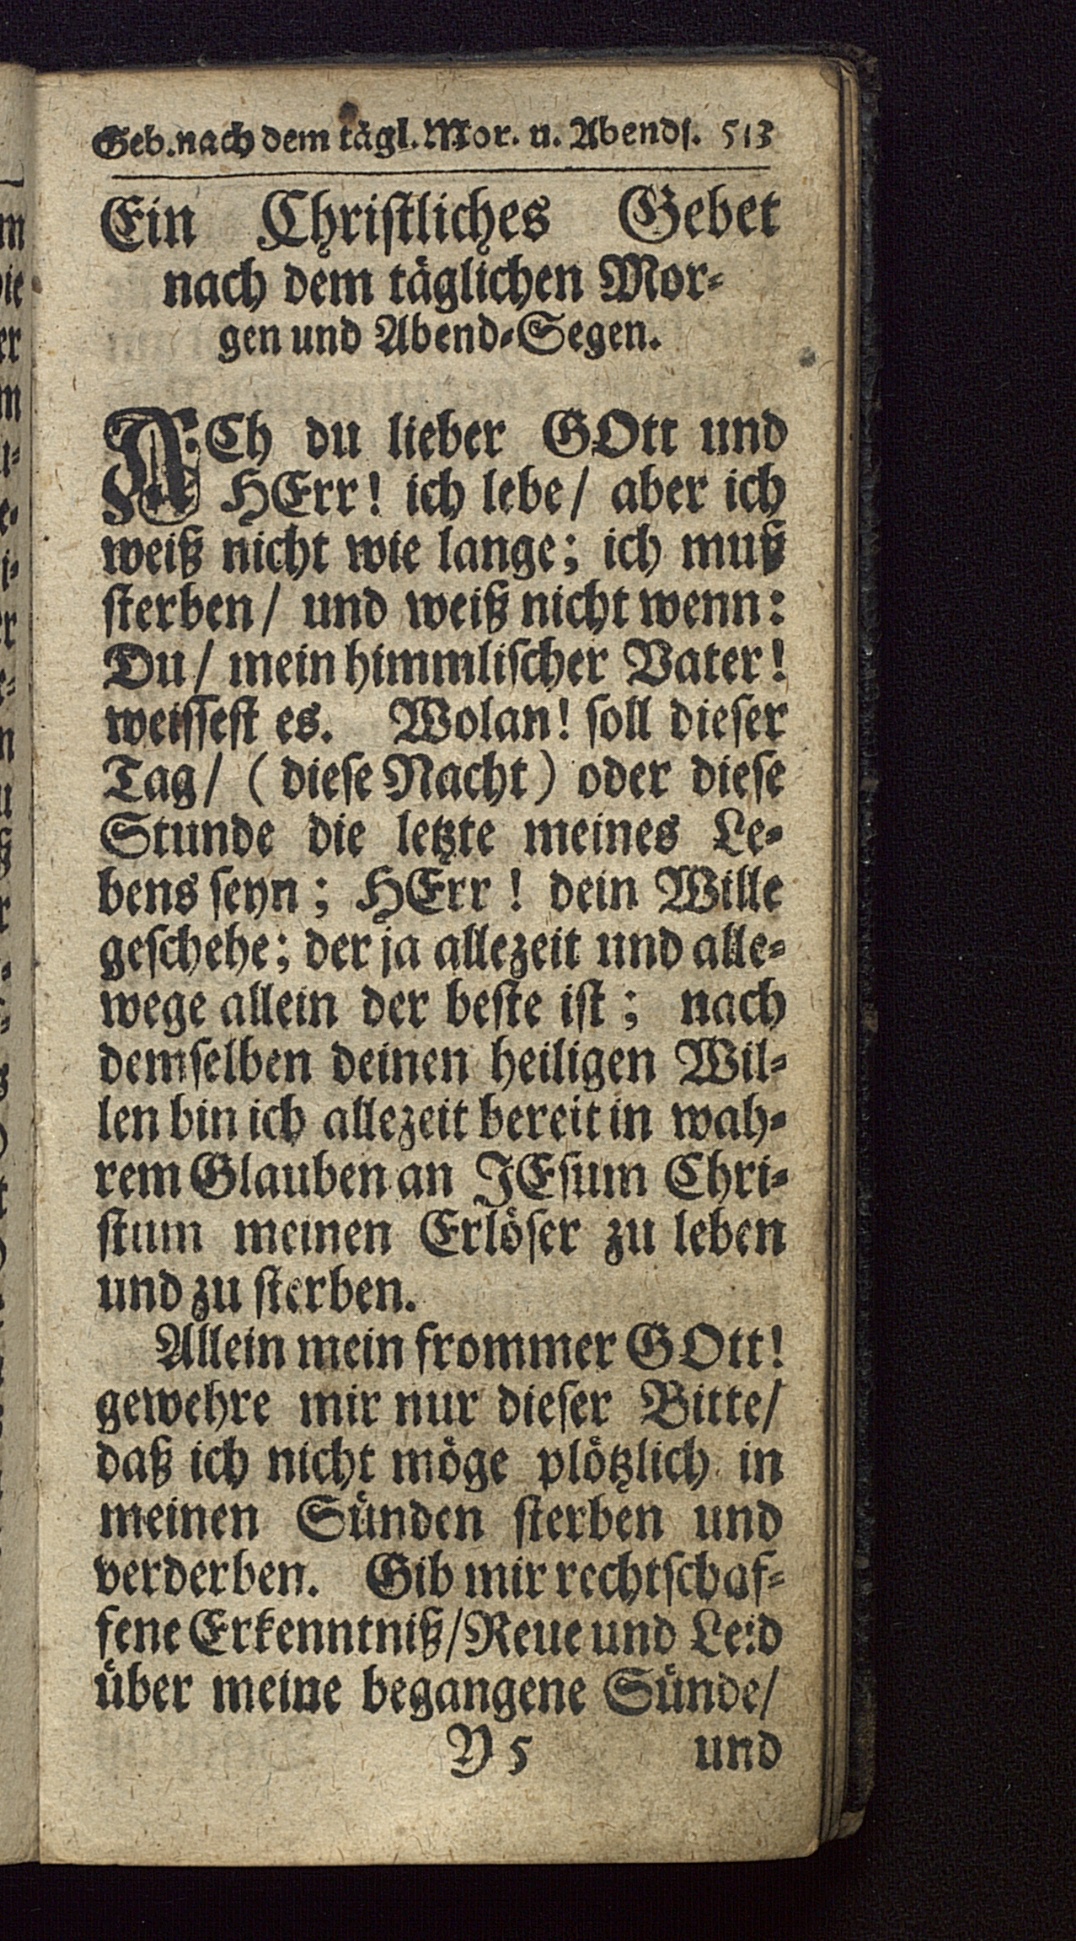 Geb. nach dem tägl. Mor. u. Abends. 513
Ein Christliches Gebet
nach dem täglichen Mor-
gen und Abend-Segen.
ACh du lieber GOtt und
HErr! ich lebe/ aber ich
weiß nicht wie lange; ich muß
sterben/ und weiß nicht wenn:
Du/ mein himmlischer Vater!
weissest es. Wolan! soll dieser
Tag/ (diese Nacht) oder diese
Stunde die letzte meines Le-
bens seyn; HErr! dein Wille
geschehe; der ja allezeit und alle-
wege allein der beste ist; nach
demselben deinen heiligen Wil-
len bin ich allezeit bereit in wah-
rem Glauben an JEsum Chri-
stum meinen Erlöser zu leben
und zu sterben.
Allein mein frommer GOtt!
gewehre mir nur dieser Bitte/
daß ich nicht möge plötzlich in
meinen Sünden sterben und
verderben. Gib mir rechtschaf-
fene Erkenntniß/ Reue und Leid
über meine begangene Sünde/
Y 5 und